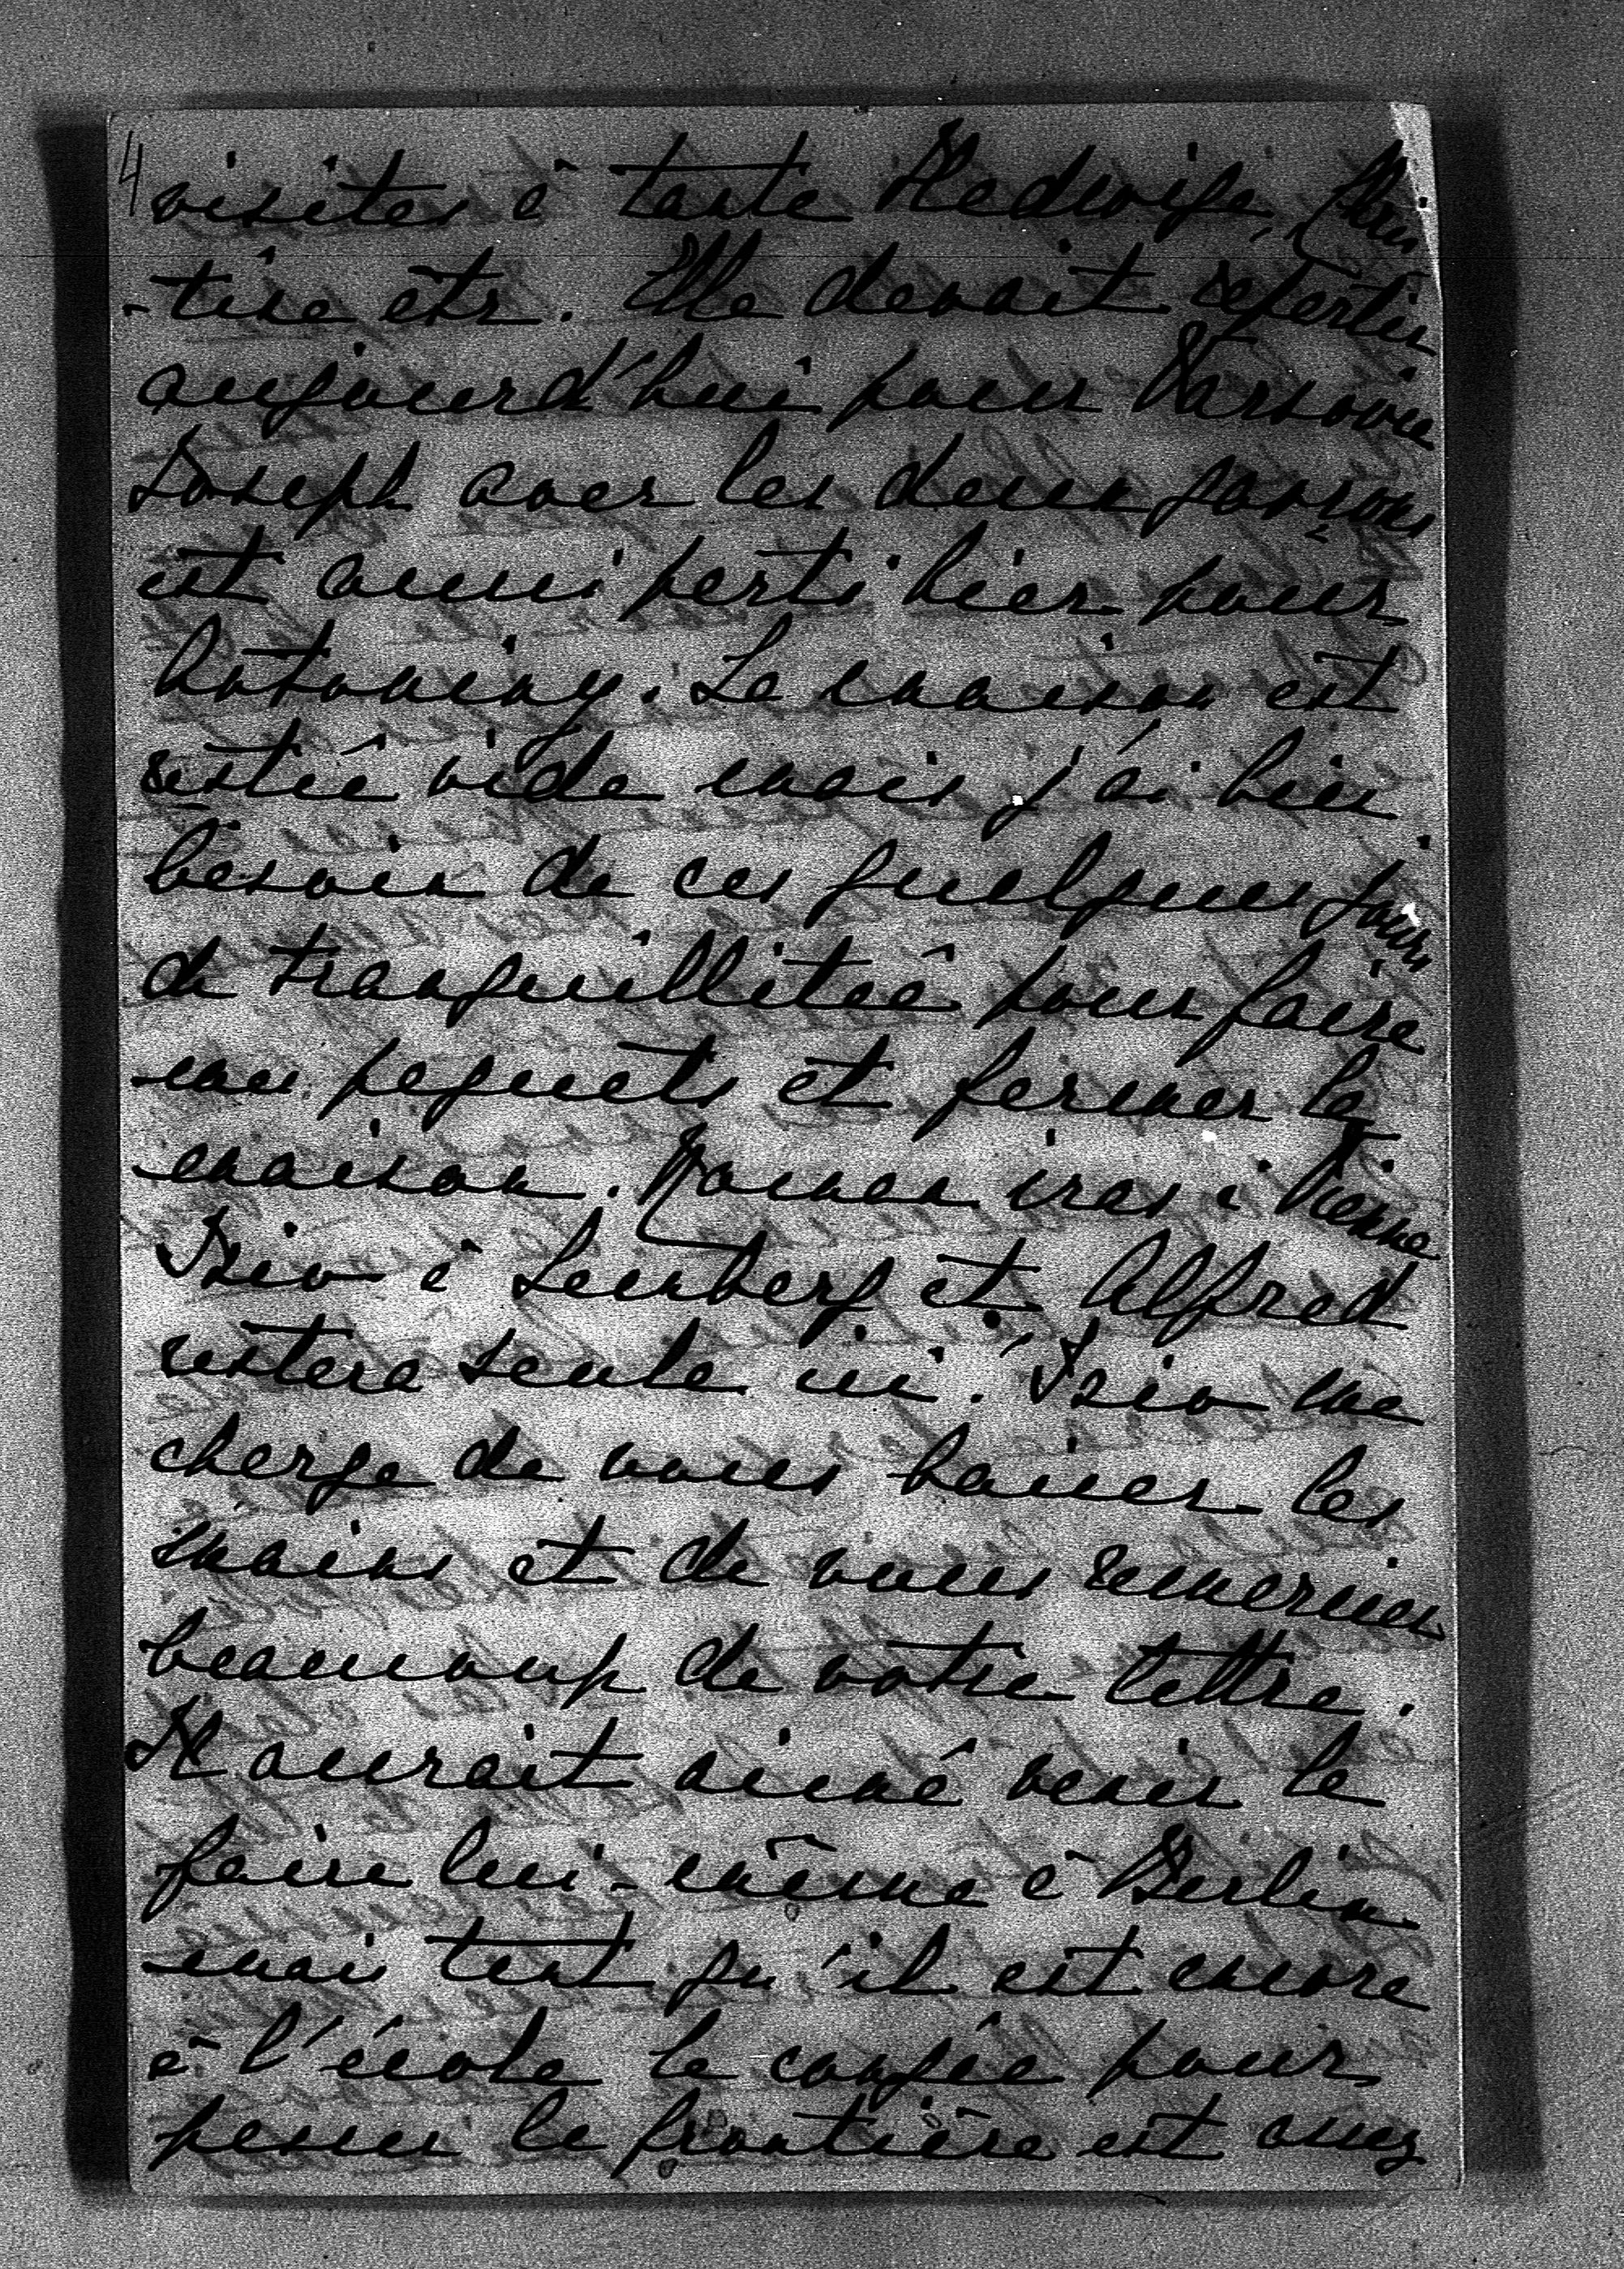 4
visites à tante Hedwige, Chris
-tise etc. Elle devait repartir
aujourd'hui pour Varsovie
Joseph avec les deux garçons
est aussi parti hier pour
Antoniny. La maison est
restée vide mais j'ai bien
besoin de ces quelques jours
de tranquillitée pour faire
mes paquets et fermer la
maison. Roman iras à Vienne
Dzio à Lemberg et Alfred
restera seule ici. Dzio me
charge de vous baiser les
mains et de vous remercier
beaucoup de votre lettre.
Il aurait aimé venir le
faire lui-même à Berlin
mais tant qu'il est encore
à l'école le congée pour
passer la frontière est assez